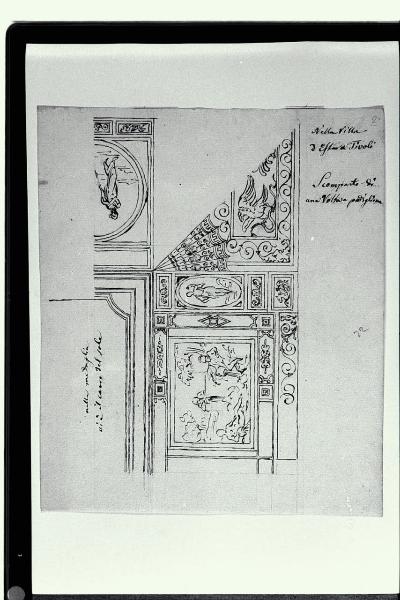 Nella Villa
d'Este a Tivoli
Scomparto di
una Volta a padiglione
nella medaglia
vi è il carro del sole